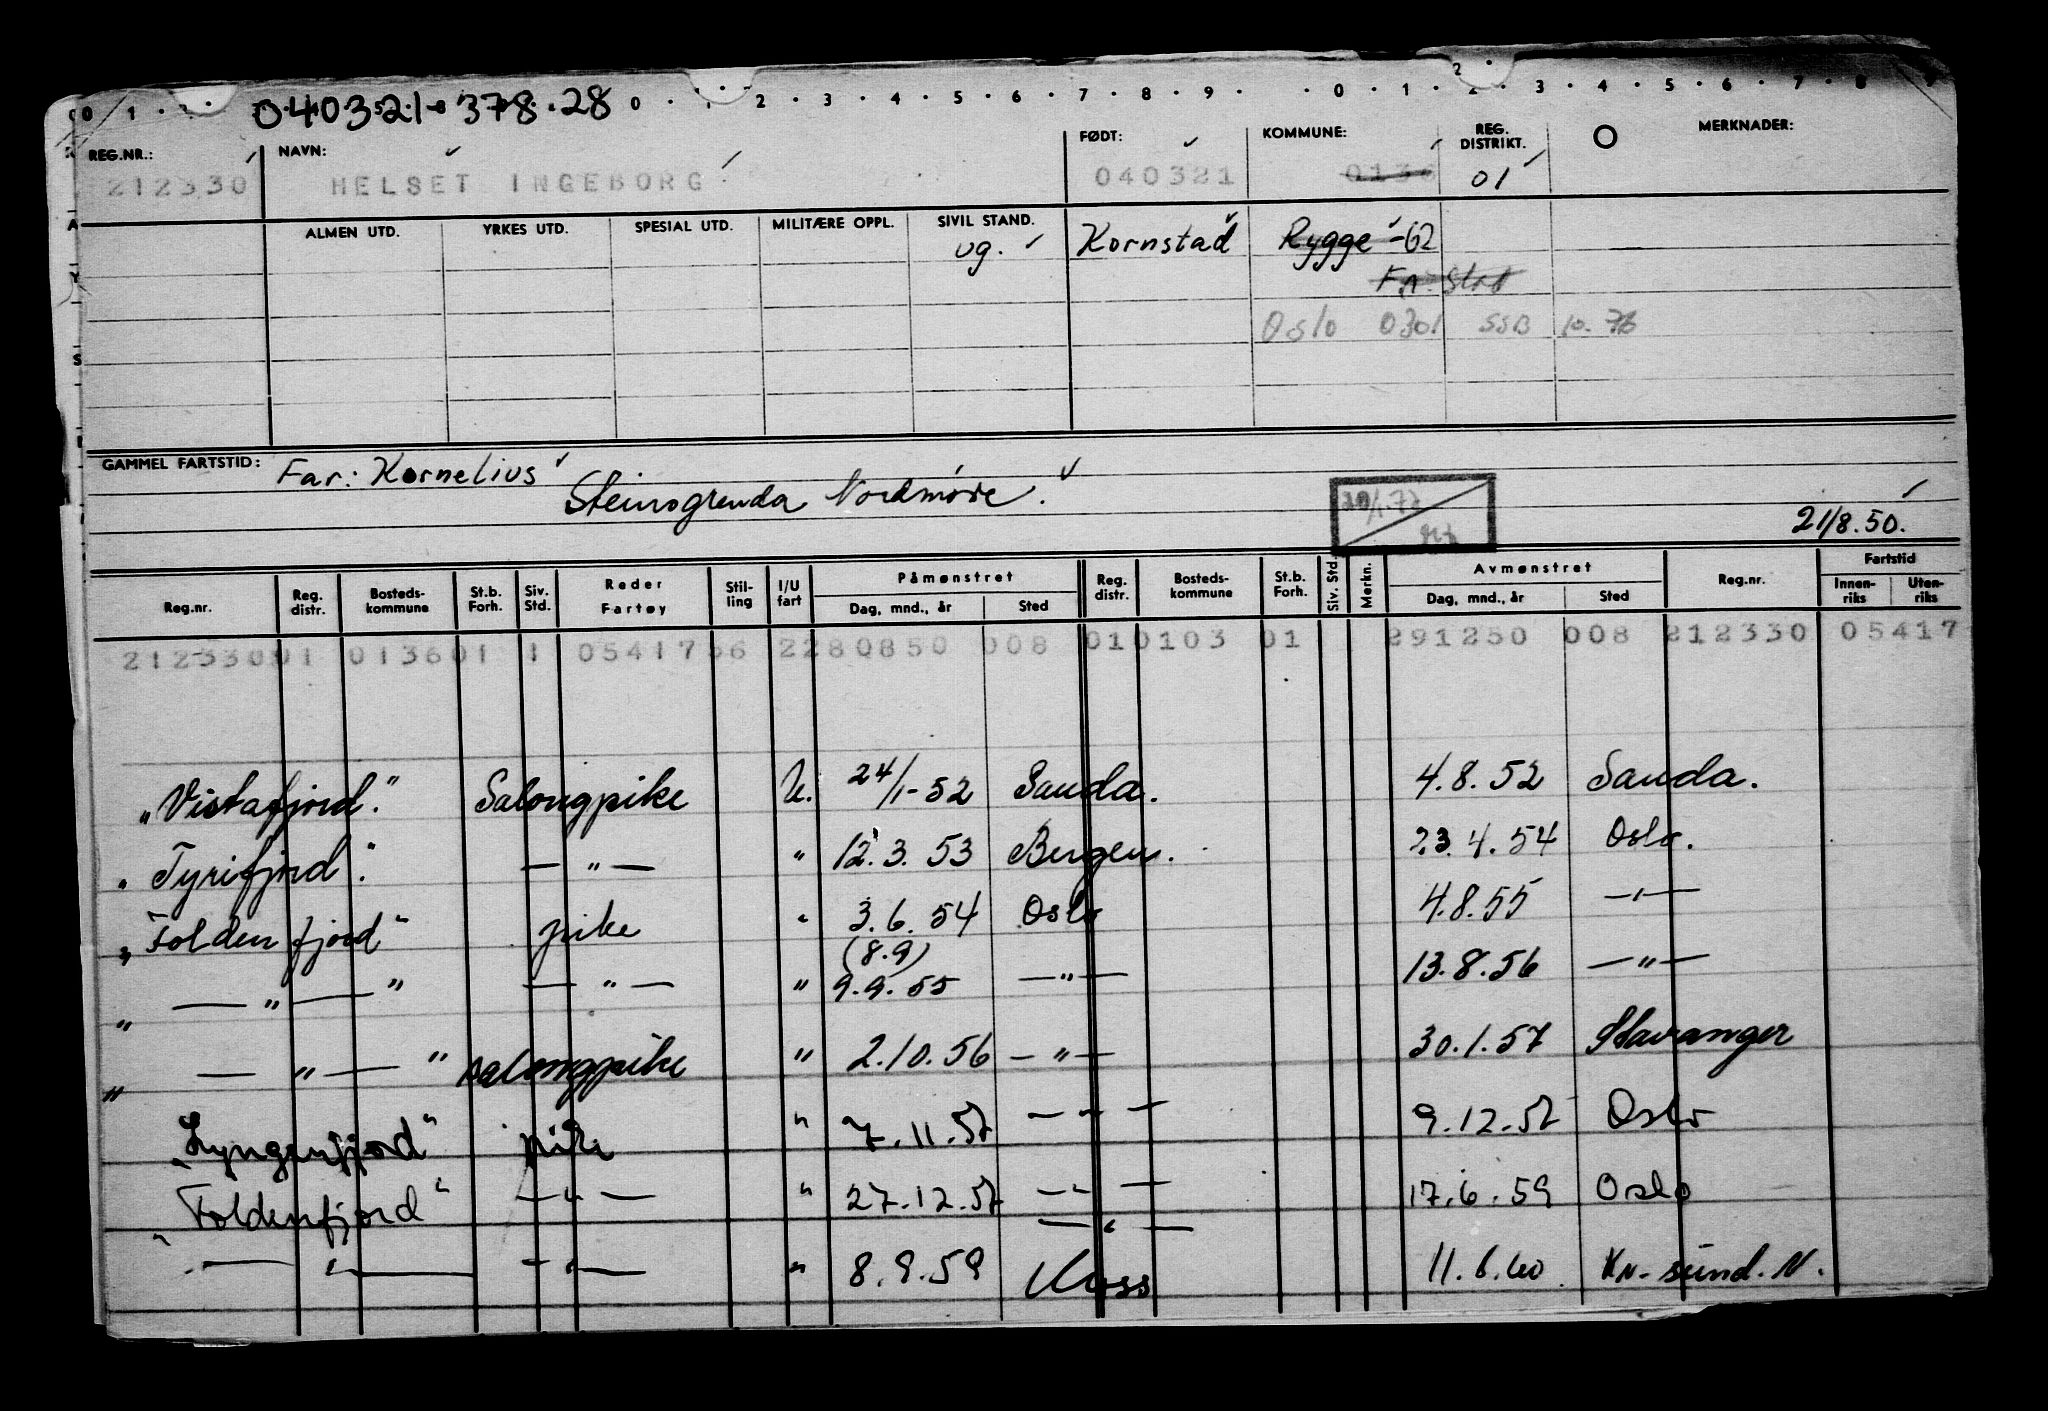 0 1 0 1 2 3 4 5 6 7 8 9 0 1 2 3 4 5 6 7 8 9
040321-378.28
REG.NR.: NAVN: FØDT: KOMMUNE: REG. DISTRIKT. MERKNADER:
212330 HELSET INGEBORG 040321 0136 01
ALMEN UTD. YRKES UTD. SPESIAL UTD. MILITÆRE OPPL. SIVIL STAND.
ug. Kornstad Rygge -62
Oslo 0301 SSB 10.76
GAMMEL FARTSTID: Far: Kornelius
Steinsgrenda Nordmøre.
21/8.50.
Reg.nr. Reg. distr. Bosteds-kommune St.b. Forh. Siv. Std. Reder Fartøy Stil-ling I/U fart Påmønstret Dag, mnd., år Sted Reg. distr. Bosteds-kommune St.b. Forh. Siv. Std. Merkn. Avmønstret Dag, mnd., år Sted Reg.nr. Fartstid Innen-riks Uten-riks
212330 01 0136 01 1 05417 56 2 280850 008 01 0103 01 291250 008 212330 05417
"Vistafjord." Salongpike U. 24/1-52 Sauda. 4.8.52 Sauda.
"Tyrifjord". — " — " 12.3.53 Bergen. 23.4.54 Oslo.
"Foldenfjord" pike " 3.6.54 Oslo 4.8.55 — " —
(8.9)
" — " — " — " — " 9.9.55 — " — 13.8.56 — " —
" — " — " salongpike " 2.10.56 — " — 30.1.57 Stavanger
"Lyngenfjord" pike " 7.11.57 — " — 9.12.57 Oslo
"Foldenfjord" — " — " 27.12.57 — " — 17.6.59 Oslo
— " —
— " — — " — " 8.9.59 Moss 11.6.60 Kr.sund.N.